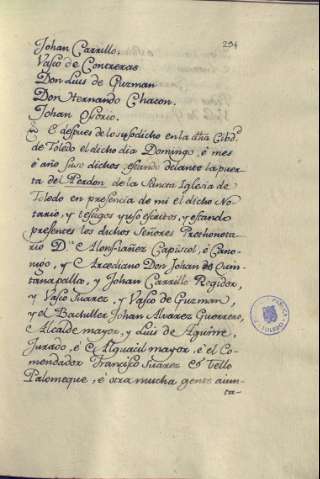 294
Johan Carrillo.
Vasco de Contreras
Don Luis de Guzman
Don Hernando Chacon.
Johan Osorio.
E despues de lo susodicho en la dha Cibd.
de Toledo el dicho dia Domingo, è mes
è año suso dichos estando delante la puer
ta del Perdon de la Sancta Iglesia de
Toledo en presencia de mi el dicho No
tario, y testigos yuso escritos, y estando
presentes los dichos Señores Prothonota
rio Dn Alonso Yañez Capiscol, è Cano-
nigo, y Arcediano Don Johan de Quin
tanapalla, y Johan Carrillo Regidor,
y Vasco Suarez, y Vasco de Guzman,
y el Bachiller Johan Alvarez Guerrero,
Alcalde mayor, y Luis de Aguirre,
Jurado, è Alguacil mayor, è el Co-
mendador Francisco Suarez è Tello
Palomeque, è otra mucha gente aiun-
ta-